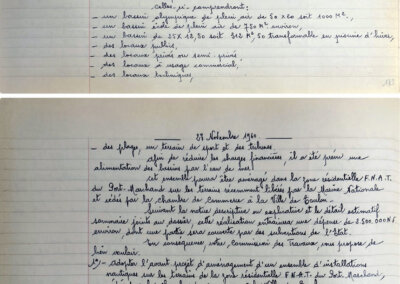 Celles-ci comprendront :
- un bassin olympique de plein air de 50 x 20 soit 1000 M².,
- un bassin école de plein air de 750 M² environ,
- un bassin de 25 x 12,50 soit 312 M² 50 transformable en piscine d'hiver,
- des locaux publics,
- des locaux privés ou semi-privés,
- des locaux à usage commercial,
- des locaux techniques,
27 Novembre 1960
- des plages, un terrain de sport et des tribunes.
afin de réduire les charges financières, il a été prévu une
alimentation des bassins par l'eau de mer.
Cet ensemble pourra être aménagé dans la zone résidentielle F.N.A.T.
du Port-Marchand sur les terrains récemment libérés par la Marine Nationale
et cédés par la Chambre de Commerce à la Ville de Toulon.
Suivant la notice descriptive et explicative et le détail estimatif
sommaire joints au dossier, cette réalisation entraînera une dépense de 2.500.000 NF
environ dont une partie sera couverte par des subventions de l'Etat.
En conséquence, votre Commission des Travaux, vous propose de
bien vouloir :
1°- Adopter l'avant-projet d'aménagement d'un ensemble d'installations
nautiques sur les terrains de la zone résidentielle F.N.A.T. du Port Marchand,